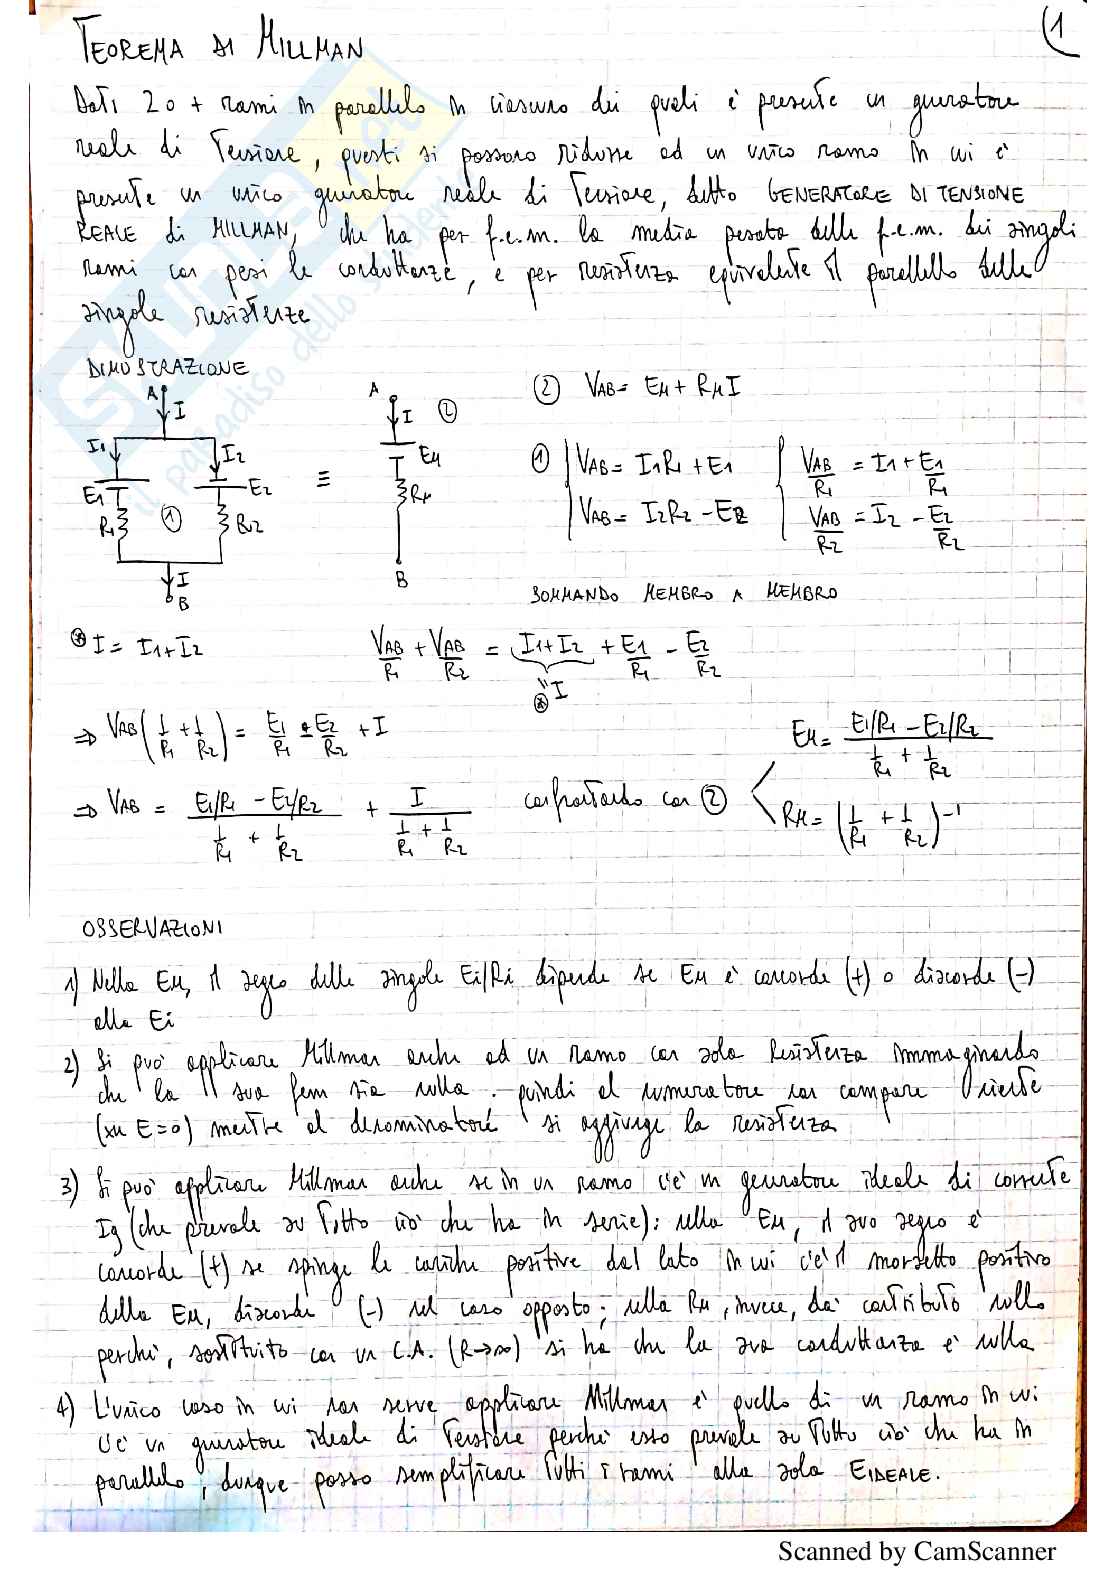 (1
TEOREMA DI MILLMAN
Dati 2 o + rami in parallelo in ciascuno dei quali è presente un generatore
reale di Tensione, questi si possono ridurre ad un unico ramo in cui è
presente un unico generatore reale di Tensione, detto GENERATORE DI TENSIONE
REALE di MILLMAN, che ha per f.e.m. la media pesata delle f.e.m. dei singoli
rami con pesi le conduttanze, e per resistenza equivalente il parallelo delle
singole resistenze
DIMOSTRAZIONE
A I I1 I2 E1 E2 R1 R2 ① I B
≡
A I ② EM RM B
② VAB = EM + RM I
① VAB = I1R1 + E1 VAB/R1 = I1 + E1/R1
VAB = I2R2 - E2 VAB/R2 = I2 - E2/R2
SOMMANDO MEMBRO A MEMBRO
⊛ I = I1 + I2 VAB/R1 + VAB/R2 = I1 + I2 + E1/R1 - E2/R2
" I ⊛
⇒ VAB (1/R1 + 1/R2) = E1/R1 ± E2/R2 + I
EM = (E1/R1 - E2/R2) / (1/R1 + 1/R2)
⇒ VAB = (E1/R1 - E2/R2) / (1/R1 + 1/R2) + I / (1/R1 + 1/R2) confrontando con ②
RM = (1/R1 + 1/R2)^-1
OSSERVAZIONI
1) Nella EM, il segno delle singole Ei/Ri dipende se EM è concorde (+) o discorde (-)
alla Ei
2) Si può applicare Millman anche ad un ramo con sola Resistenza immaginando
che la sua fem sia nulla. quindi al numeratore non compare niente
(xké E=0) mentre al denominatore si aggiunge la resistenza
3) Si può applicare Millman anche se in un ramo c'è un generatore ideale di corrente
Ig (che prevale su Tutto ciò che ha in serie): nella EM, il suo segno è
concorde (+) se spinge le cariche positive dal lato in cui c'è il morsetto positivo
della EM, discorde (-) nel caso opposto; nella RM, invece, dà contributo nullo
perché, sostituito con un C.A. (R→∞) si ha che la sua conduttanza è nulla
4) L'unico caso in cui non serve applicare Millman è quello di un ramo in cui
c'è un generatore ideale di Tensione perché esso prevale su Tutto ciò che ha in
parallelo, dunque posso semplificare Tutti i rami alla sola EIDEALE.
Scanned by CamScanner